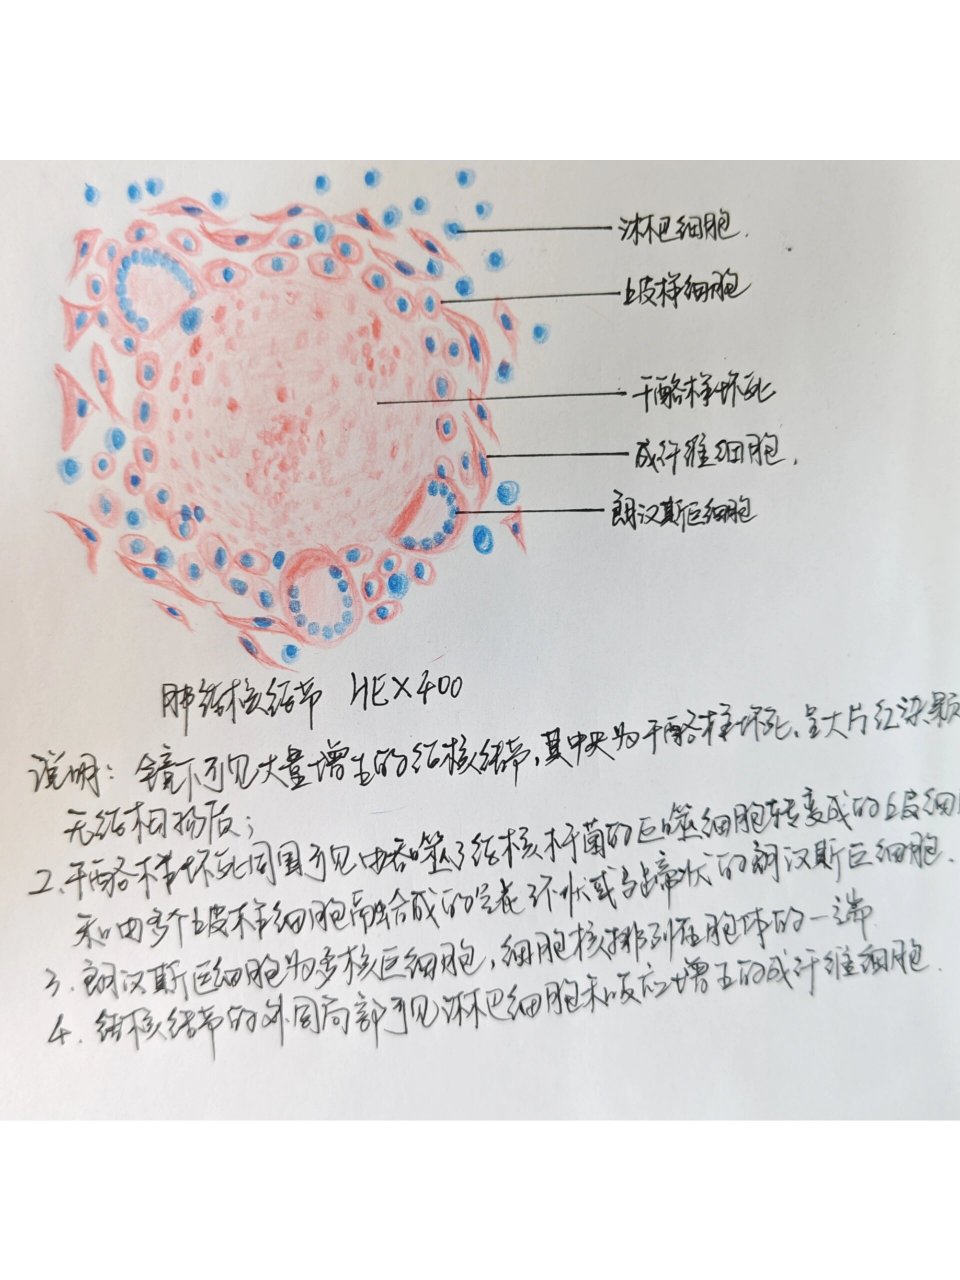 淋巴细胞.
上皮样细胞
干酪样坏死
成纤维细胞.
朗汉斯巨细胞
肺结核结节 HEX400
说明: 镜下可见大量增生的结核结节,其中央为干酪样坏死,呈大片红染颗
无结构物质;
2.干酪样坏死周围可见由吞噬了结核杆菌的巨噬细胞转变成的上皮细
和由多个上皮样细胞融合成的呈花环状或马蹄状的朗汉斯巨细胞.
3.朗汉斯巨细胞为多核巨细胞,细胞核排列在胞体的一端
4.结核结节的外周局部可见淋巴细胞和反应增生的成纤维细胞.